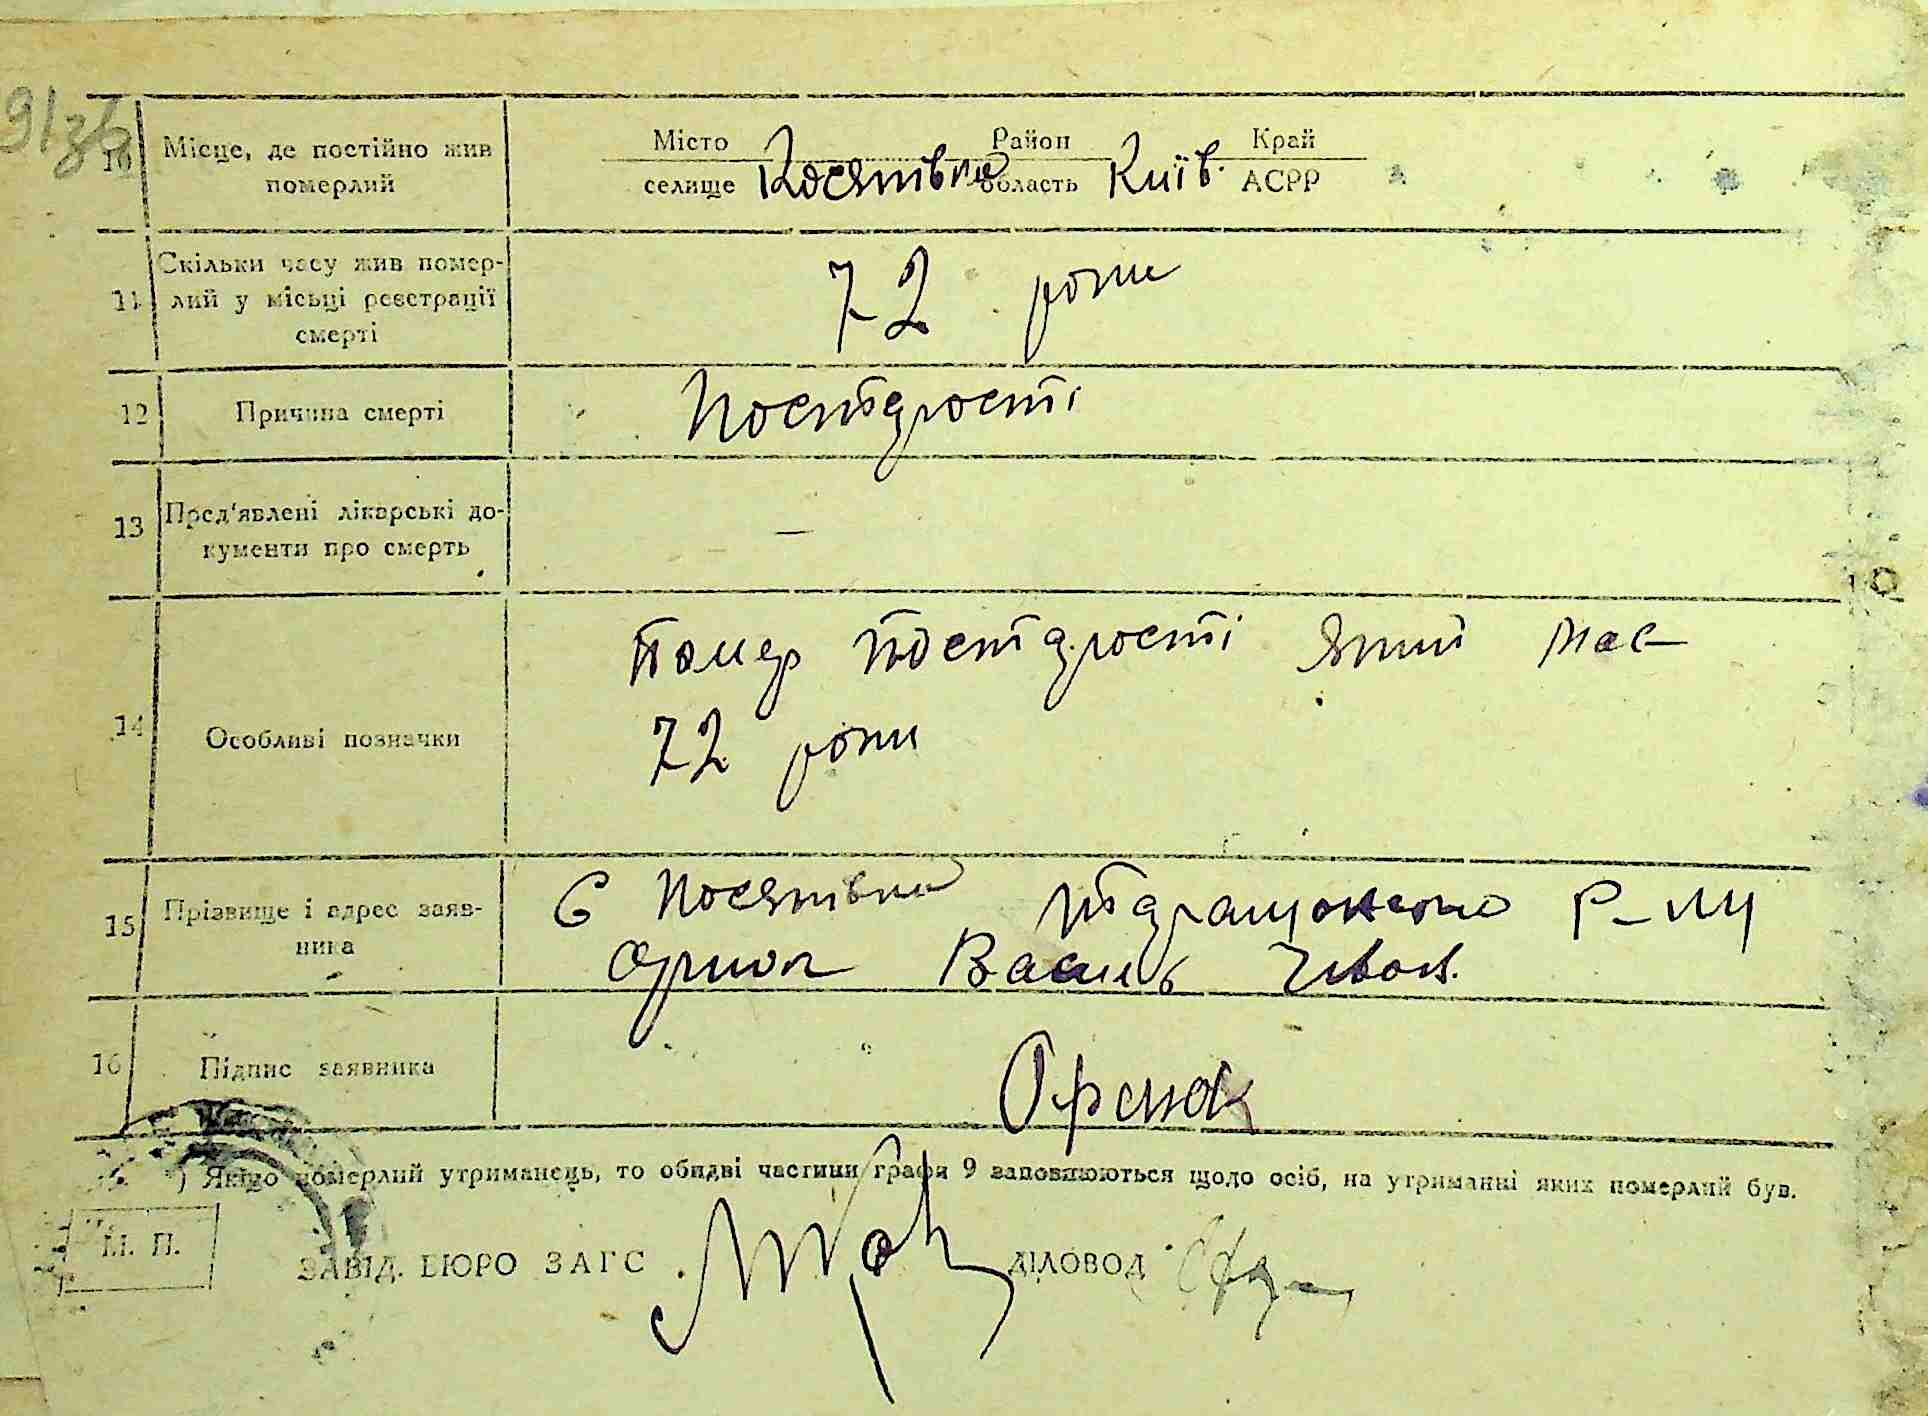 91зв
10 Місце, де постійно жив померлий
Місто Район Край
селище Косятівка область Київ. АСРР
11 Скільки часу жив помер-
лий у місьці реєстрації
смерті
72 роки
12 Причина смерті
13 Пред'явлені лікарські до-
кументи про смерть
—
14 Особливі позначки
Помер який має
72 роки
15 Прізвище і адрес заяв-
ника
С Косятівка р-ну
Василь Іван.
16 Підпис заявника
) Якщо померлий утриманець, то обидві частини графи 9 заповнюються щодо осіб, на утриманні яких померлий був.
М. П.
ЗАВІД. БЮРО ЗАГС ДІЛОВОД